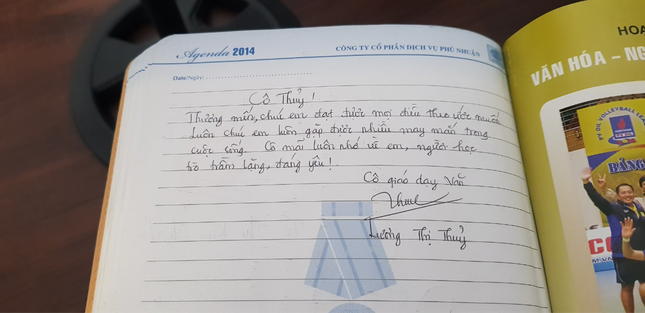 Agenda 2014
CÔNG TY CỔ PHẦN DỊCH VỤ PHÚ NHUẬN
Date/Ngày:
Cô Thuỷ!
Thương mến, chúc em đạt được mọi điều theo ước muốn
Luôn chúc em luôn gặp được nhiều may mắn trong
cuộc sống. Cô mãi luôn nhớ về em, người học
trò trầm lặng, đáng yêu!
Cô giáo dạy Văn
Lương Thị Thuỷ
HOA
VĂN HÓA - NG
PV OIL VOLLEYBALL LEA
BẢNG